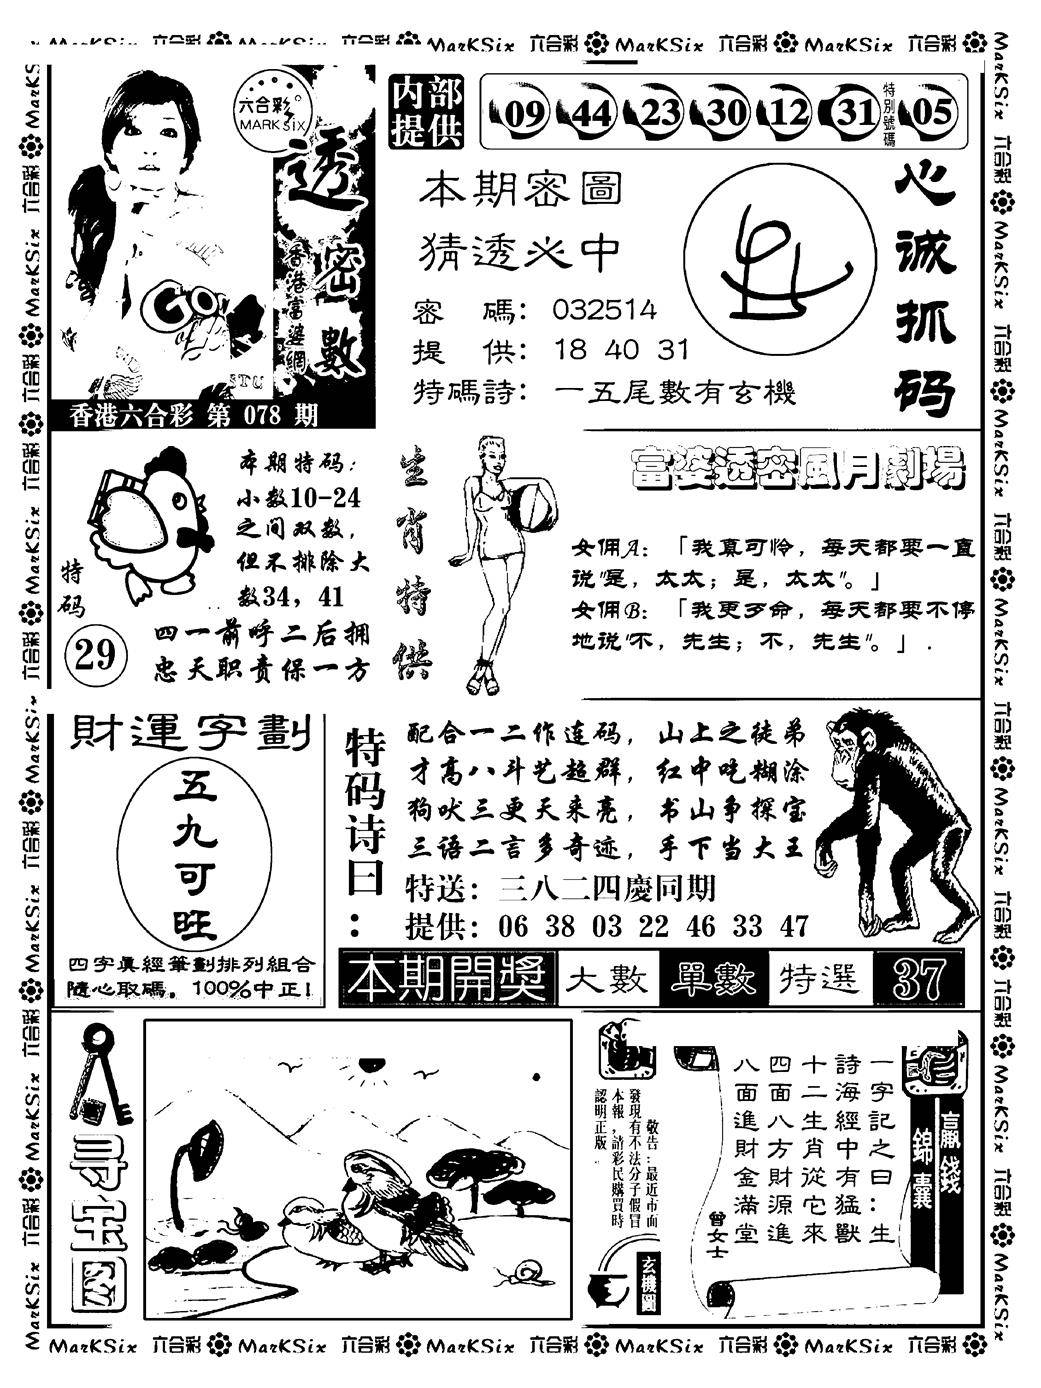 MarKSix 六合彩 MarKSix 六合彩 MarKSix 六合彩 MarKSix 六合彩 MarKSix 六合彩
六合彩
MARKSiX
透密數
香港富婆網
香港六合彩 第 078 期
内部
提供
09 44 23 30 12 31 特別號碼 05
本期密圖
猜透必中
密 碼：032514
提 供：18 40 31
特碼詩：一五尾數有玄機
心诚抓码
本期特码：
小数10-24
之间双数，
但不排除大
数34，41
特码
29
四一前呼二后拥
忠天职责保一方
生肖特供
富婆透密風月劇場
女佣A：「我真可怜，每天都要一直
说"是，太太；是，太太"。」
女佣B：「我更歹命，每天都要不停
地说"不，先生；不，先生"。」.
財運字劃
五九可旺
四字眞經筆劃排列組合
隨心取碼，100%中正！
特码诗曰：
配合一二作连码，山上之徒弟
才高八斗艺超群，红中吃糊涂
狗吠三更天来亮，书山争探宝
三语二言多奇迹，手下当大王
特送：三八二四慶同期
提供：06 38 03 22 46 33 47
本期開獎 大數 單數 特選 37
寻宝图
敬告：最近市面
發現有不法分子假冒
本報，請彩民購買時
認明正版
玄機圖
贏錢
錦囊
一字記之曰：生
詩海經中有猛獸
十二生肖從它來
四面八方財源進
八面進財金滿堂
曾女士
MarKSix 六合彩 MarKSix 六合彩 MarKSix 六合彩 MarKSix 六合彩 MarKSix 六合彩